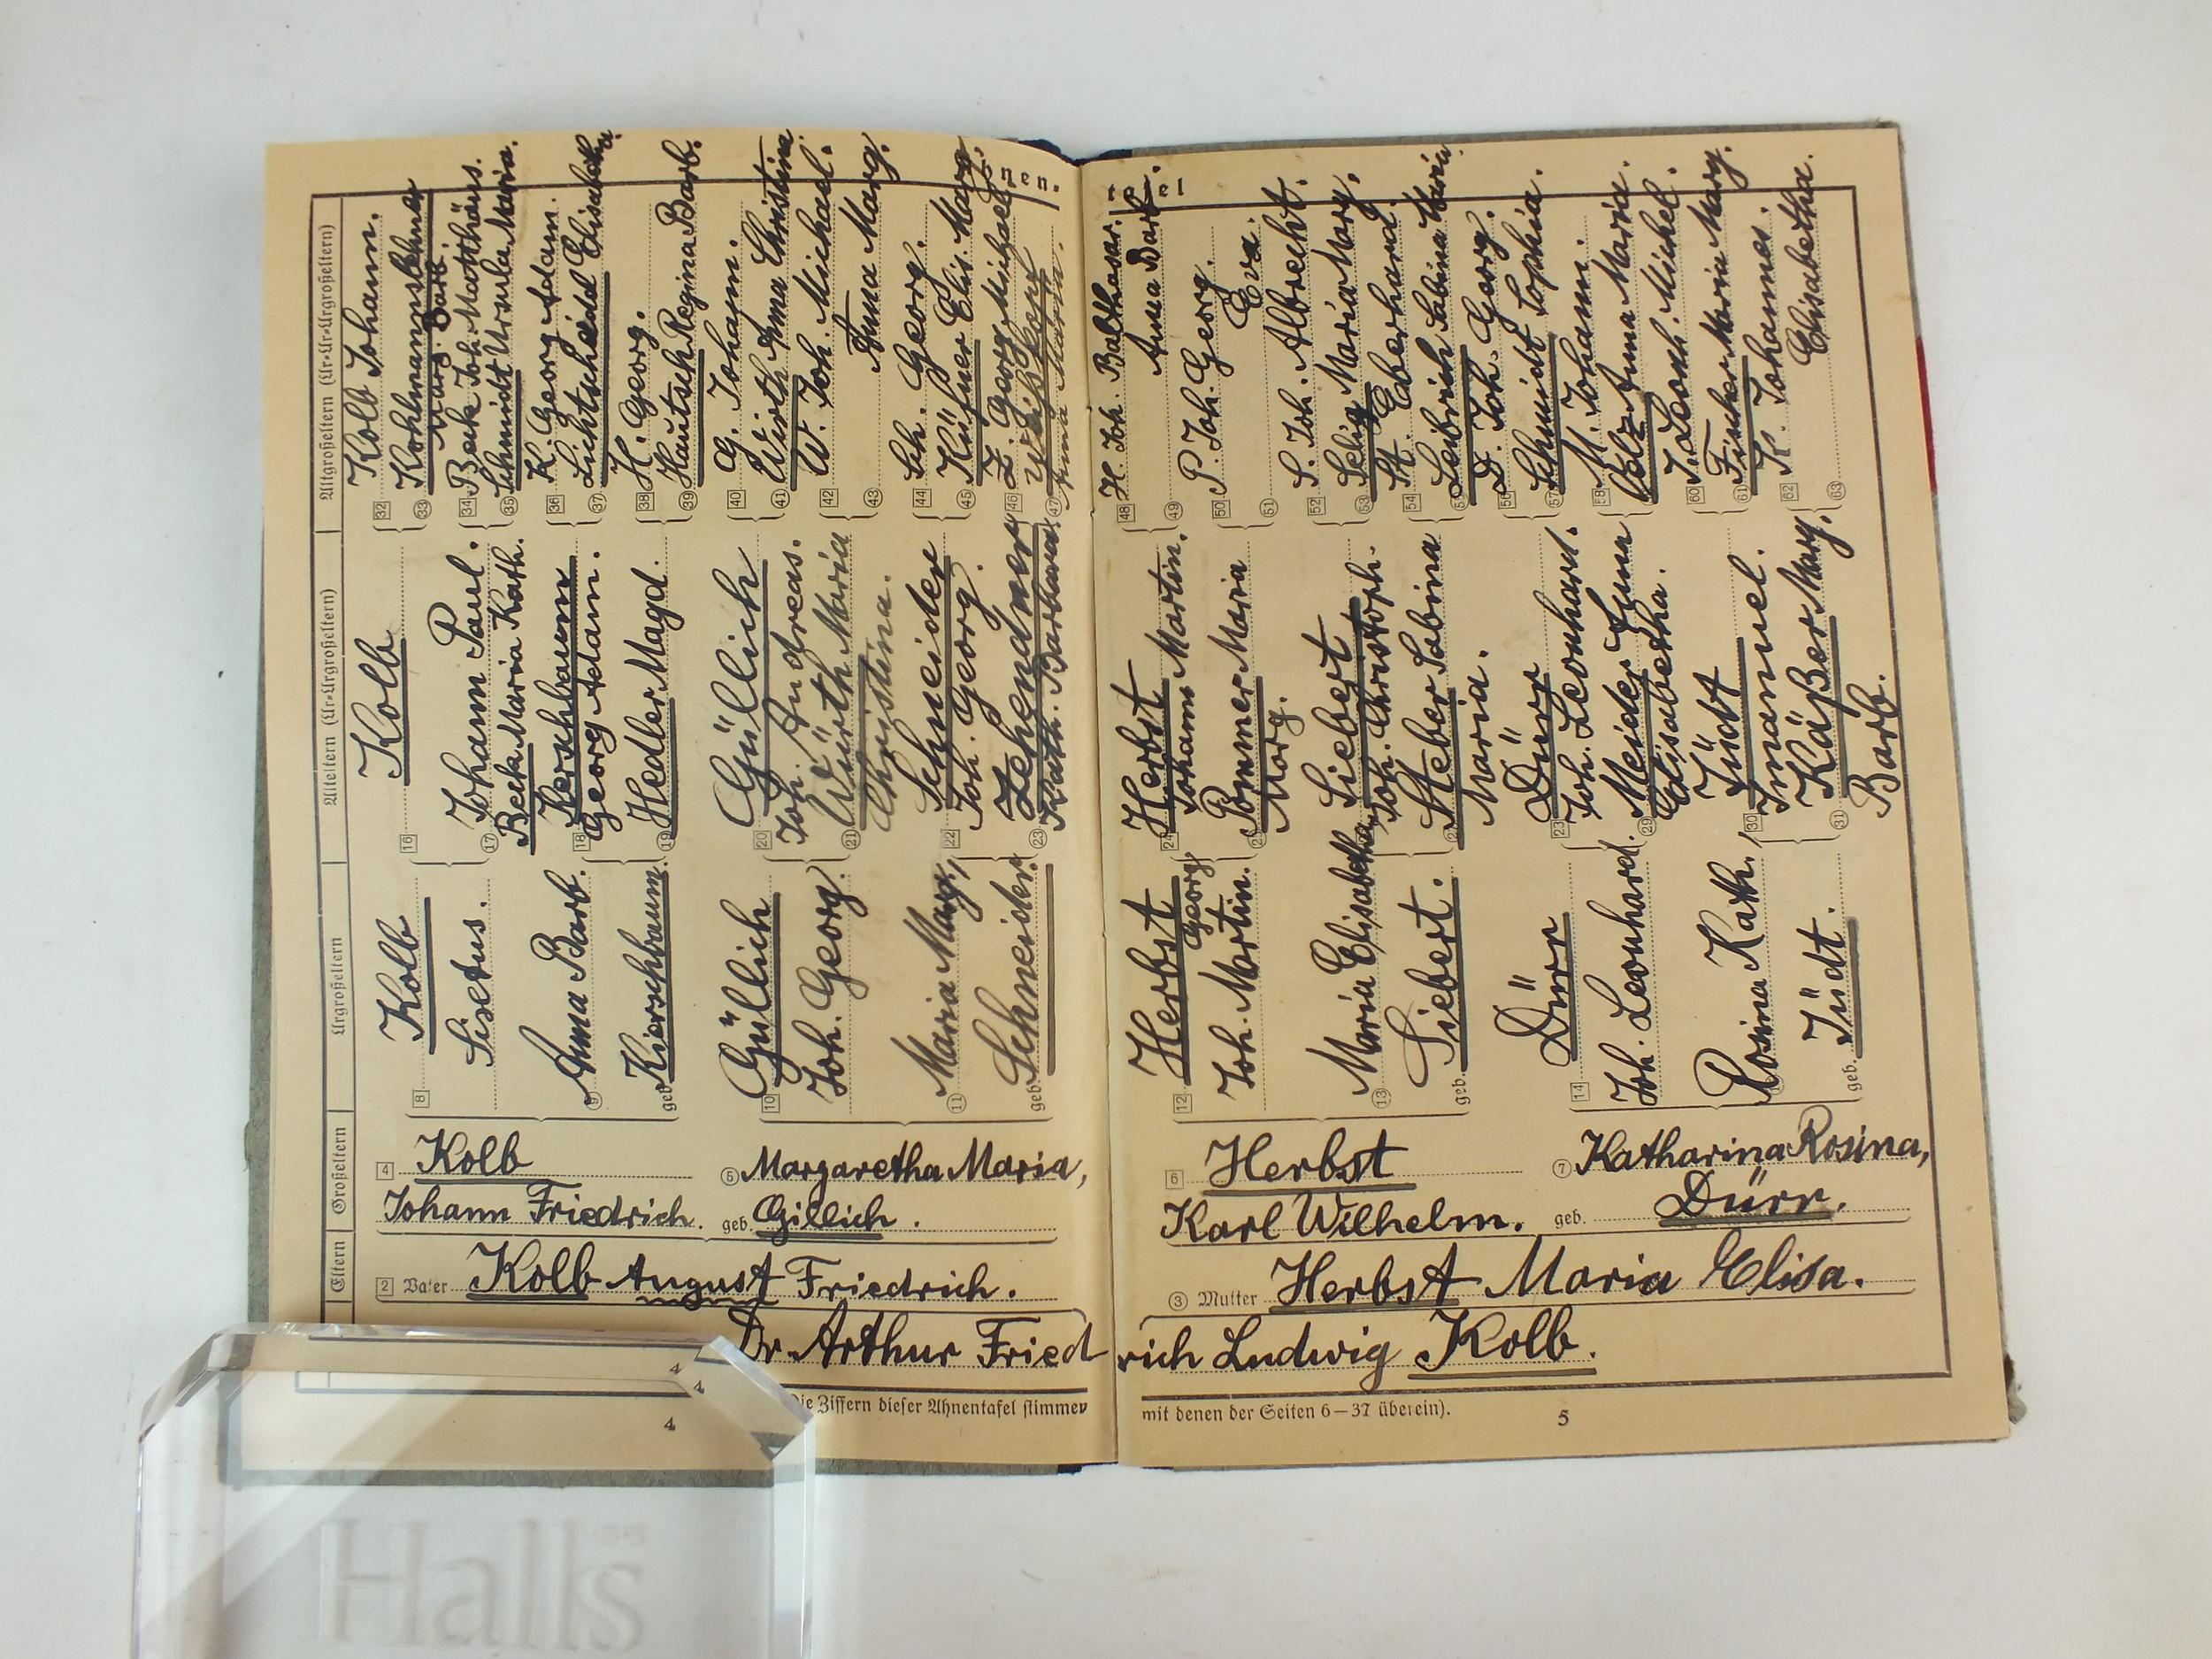 Altgroßeltern (Ur-Ur-Urgroßeltern)
32 Kolb Johann.
33 Kohlmannslehner
Marg. Barb.
34 Beck Joh. Matthäus.
35 Schmidt Ursula Maria.
36 K. Georg Adam.
37 Lichtscheidel Elisabetha.
38 H. Georg.
39 Hautsch Regina Barb.
40 G. Johann.
41 Wirth Anna Christina.
42 W. Joh. Michael.
43 Anna Marg.
44 Sch. Georg.
45 Küfner Elis. Marg.
46 Z. Georg Michael
47 Weißkopf
Anna Maria.
nen.
el
48 H. Joh. Balthasar.
49 Anna Barb.
50 P. Joh. Georg.
51 Eva.
52 S. Joh. Albrecht.
53 Selig Maria Marg.
54 St. Eberhard.
Leibrich Sabina Maria.
56 D. Joh. Georg.
57 Schmidt Sophia.
58 M. Johann.
Volz Anna Maria.
60 J. Leonh. Michel.
61 Finker Maria Marg.
62 K. Johannes.
63 Elisabetha.
Alteltern (Ur-Urgroßeltern)
16 Kolb
Johann Paul.
17 Beck Maria Kath.
18 Kerschbaum
Georg Adam.
19 Hedler Magd.
20 Güllich
Joh. Andreas.
21 Würth Maria
Christina.
22 Schneider
Joh. Georg.
23 Zehendner
Kath. Barbara.
24 Herbst
Johann Martin.
Pommer Maria
Marg.
Siebert
Joh. Christoph.
Steber Sabina
Maria.
23 Dürr
Joh. Leonhard.
29 Meider Anna
Elisabetha.
30 Jüdt
Imanuel.
31 Käßer Marg.
Barb.
Urgroßeltern
8 Kolb
Sixtus.
9 Anna Barb.
geb. Kierschbaum.
10 Güllich
Joh. Georg.
11 Maria Marg.,
geb. Schneider.
12 Herbst
Georg
Joh. Martin.
13 Maria Elisabetha,
geb. Siebert.
14 Dürr
Joh. Leonhard.
Rosina Kath.,
geb. Jüdt.
Großeltern
4 Kolb
Johann Friedrich.
5 Margaretha Maria,
geb. Gillich.
6 Herbst
Karl Wilhelm.
7 Katharina Rosina,
geb. Dürr.
Eltern
2 Vater Kolb August Friedrich.
3 Mutter Herbst Maria Elisa.
Dr. Arthur Friedrich Ludwig Kolb.
Die Ziffern dieser Ahnentafel stimmen mit denen der Seiten 6–37 überein).
4
5
Halls